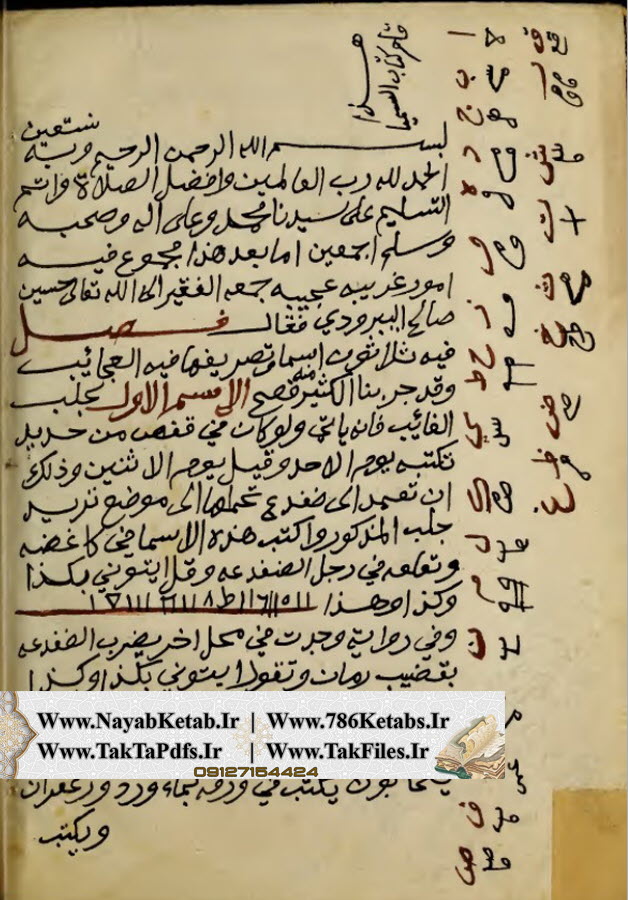 هذا
فاخر كتاب السيميا
بسم الله الرحمن الرحيم وبه نستعين
الحمد لله رب العالمين وافضل الصلاة واتم
التسليم على سيدنا محمد وعلى اله وصحبه
وسلم اجمعين اما بعد هذا مجموع فيه
امور غريبه عجيبه جمعه الفقير الى الله تعالى حسين
صالح البيرودي فقال فصل
فيه ثلاثون اسما وتصريفها فيه العجايب
وقد جربنا الكثير منه فصح الاسم الاول يجلب
الغائب فانه ياتي ولو كان في قفص من حديد
تكتبه يوم الاحد وقيل يوم الاثنين وذلك
ان تعمد الى ضفدع تحملها الى موضع تريد
جلب المذكور واكتب هذه الاسما في كاغضه
وتعلقه في رجل الضفدعه وقل ايتوني بكذا
وكذا وهذا
وفي رواية وجدت في محل اخر يضرب الضفدعه
بقضيب رمان وتقول ايتوني بكذا وكذا
Www.NayabKetab.Ir | Www.786Ketabs.Ir
Www.TakTaPdfs.Ir | Www.TakFiles.Ir
09127154424
يكتب في ورقه بماء ورد وزعفران
ويكتب
ا
ب
ج
د
ه
و
ز
ح
ط
ي
ك
ل
م
ن
س
ف
ص
ق
ر
ش
ت
ث
خ
ض
ظ
غ